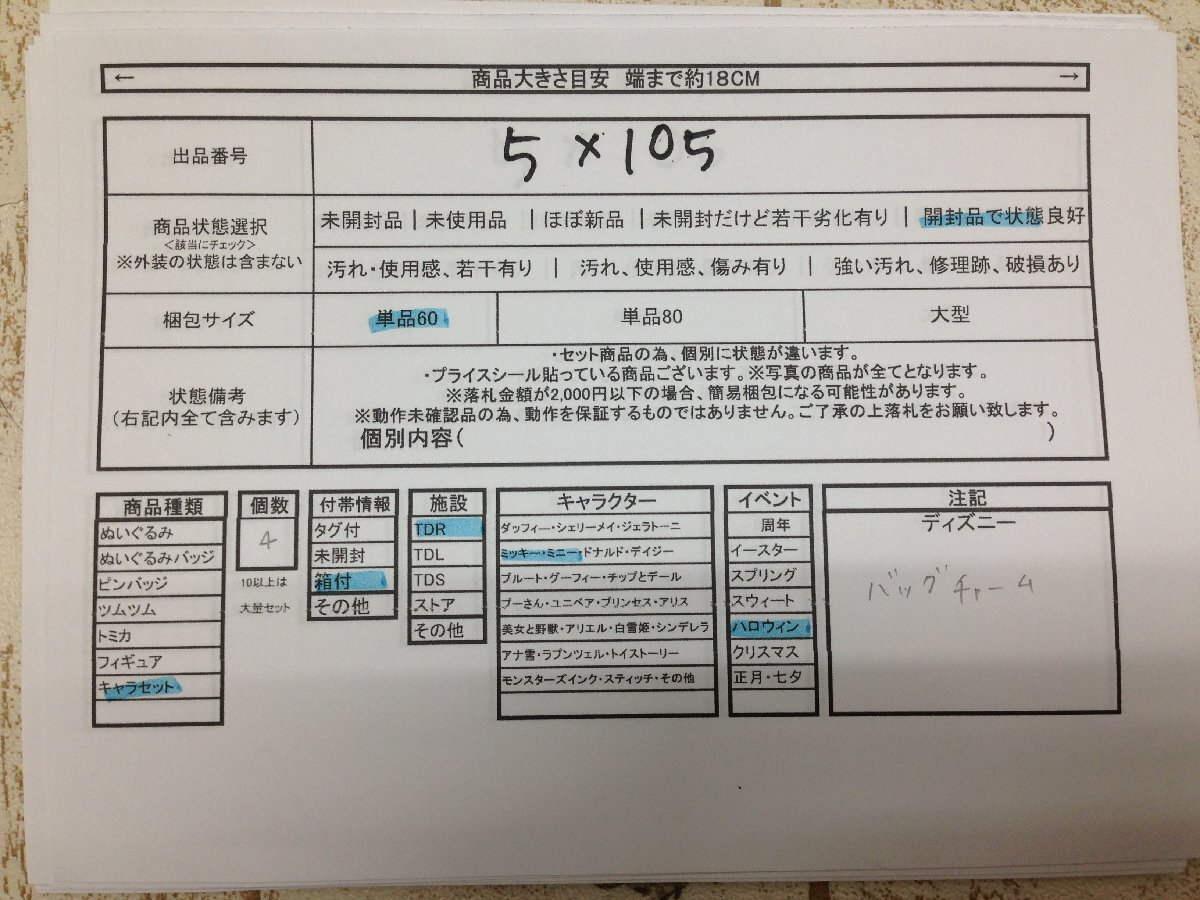 ← 商品大きさ目安 端まで約18CM →
出品番号 5×105
商品状態選択
<該当にチェック>
※外装の状態は含まない
未開封品 | 未使用品 | ほぼ新品 | 未開封だけど若干劣化有り | 開封品で状態良好
汚れ・使用感、若干有り | 汚れ、使用感、傷み有り | 強い汚れ、修理跡、破損あり
梱包サイズ 単品60 単品80 大型
状態備考
(右記内全て含みます)
・セット商品の為、個別に状態が違います。
・プライスシール貼っている商品ございます。※写真の商品が全てとなります。
※落札金額が2,000円以下の場合、簡易梱包になる可能性があります。
※動作未確認品の為、動作を保証するものではありません。ご了承の上落札をお願い致します。
個別内容( )
商品種類
ぬいぐるみ
ぬいぐるみバッジ
ピンバッジ
ツムツム
トミカ
フィギュア
キャラセット
個数
4
10以上は
大量セット
付帯情報
タグ付
未開封
箱付
その他
施設
TDR
TDL
TDS
ストア
その他
キャラクター
ダッフィー・シェリーメイ・ジェラトーニ
ミッキー・ミニー・ドナルド・デイジー
プルート・グーフィー・チップとデール
プーさん・ユニベア・プリンセス・アリス
美女と野獣・アリエル・白雪姫・シンデレラ
アナ雪・ラプンツェル・トイストーリー
モンスターズインク・スティッチ・その他
イベント
周年
イースター
スプリング
スウィート
ハロウィン
クリスマス
正月・七夕
注記
ディズニー
バッグチャーム